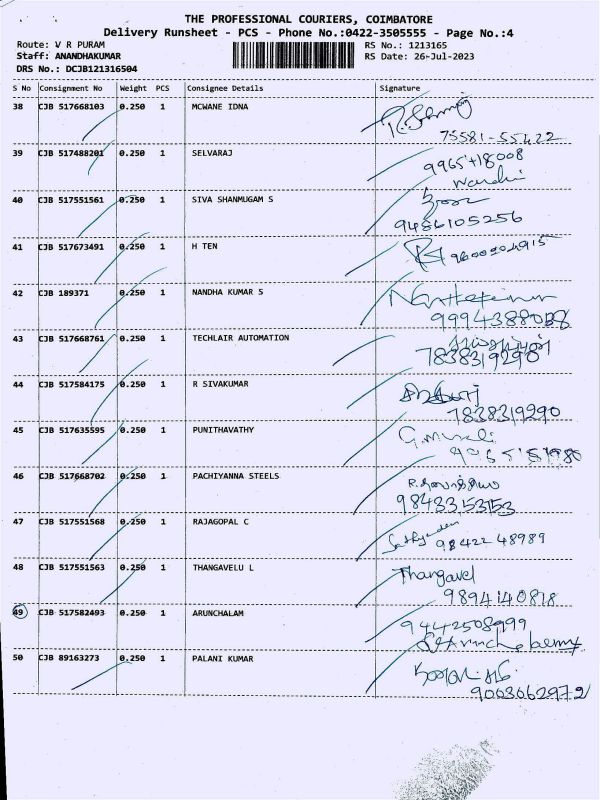 THE PROFESSIONAL COURIERS, COIMBATORE
Delivery Runsheet - PCS - Phone No.:0422-3505555 - Page No.:4
Route: V R PURAM RS No.: 1213165
Staff: ANANDHAKUMAR RS Date: 26-Jul-2023
DRS No.: DCJB121316504
S No Consignment No Weight PCS Consignee Details Signature
38 CJB 517668103 0.250 1 MCWANE IDNA
75581-55422
39 CJB 517488201 0.250 1 SELVARAJ
40 CJB 517551561 0.250 1 SIVA SHANMUGAM S
9486105256
41 CJB 517673491 0.250 1 H TEN
42 CJB 189371 0.250 1 NANDHA KUMAR S
43 CJB 517668761 0.250 1 TECHLAIR AUTOMATION
7838319290
44 CJB 517584175 0.250 1 R SIVAKUMAR
7838319290
45 CJB 517635595 0.250 1 PUNITHAVATHY
46 CJB 517668702 0.250 1 PACHIYANNA STEELS
9843353153
47 CJB 517551568 0.250 1 RAJAGOPAL C
98422 48989
48 CJB 517551563 0.250 1 THANGAVELU L Thangavel
9894140818
49 CJB 517582493 0.250 1 ARUNCHALAM 9442508999
50 CJB 89163273 0.250 1 PALANI KUMAR
9003062972